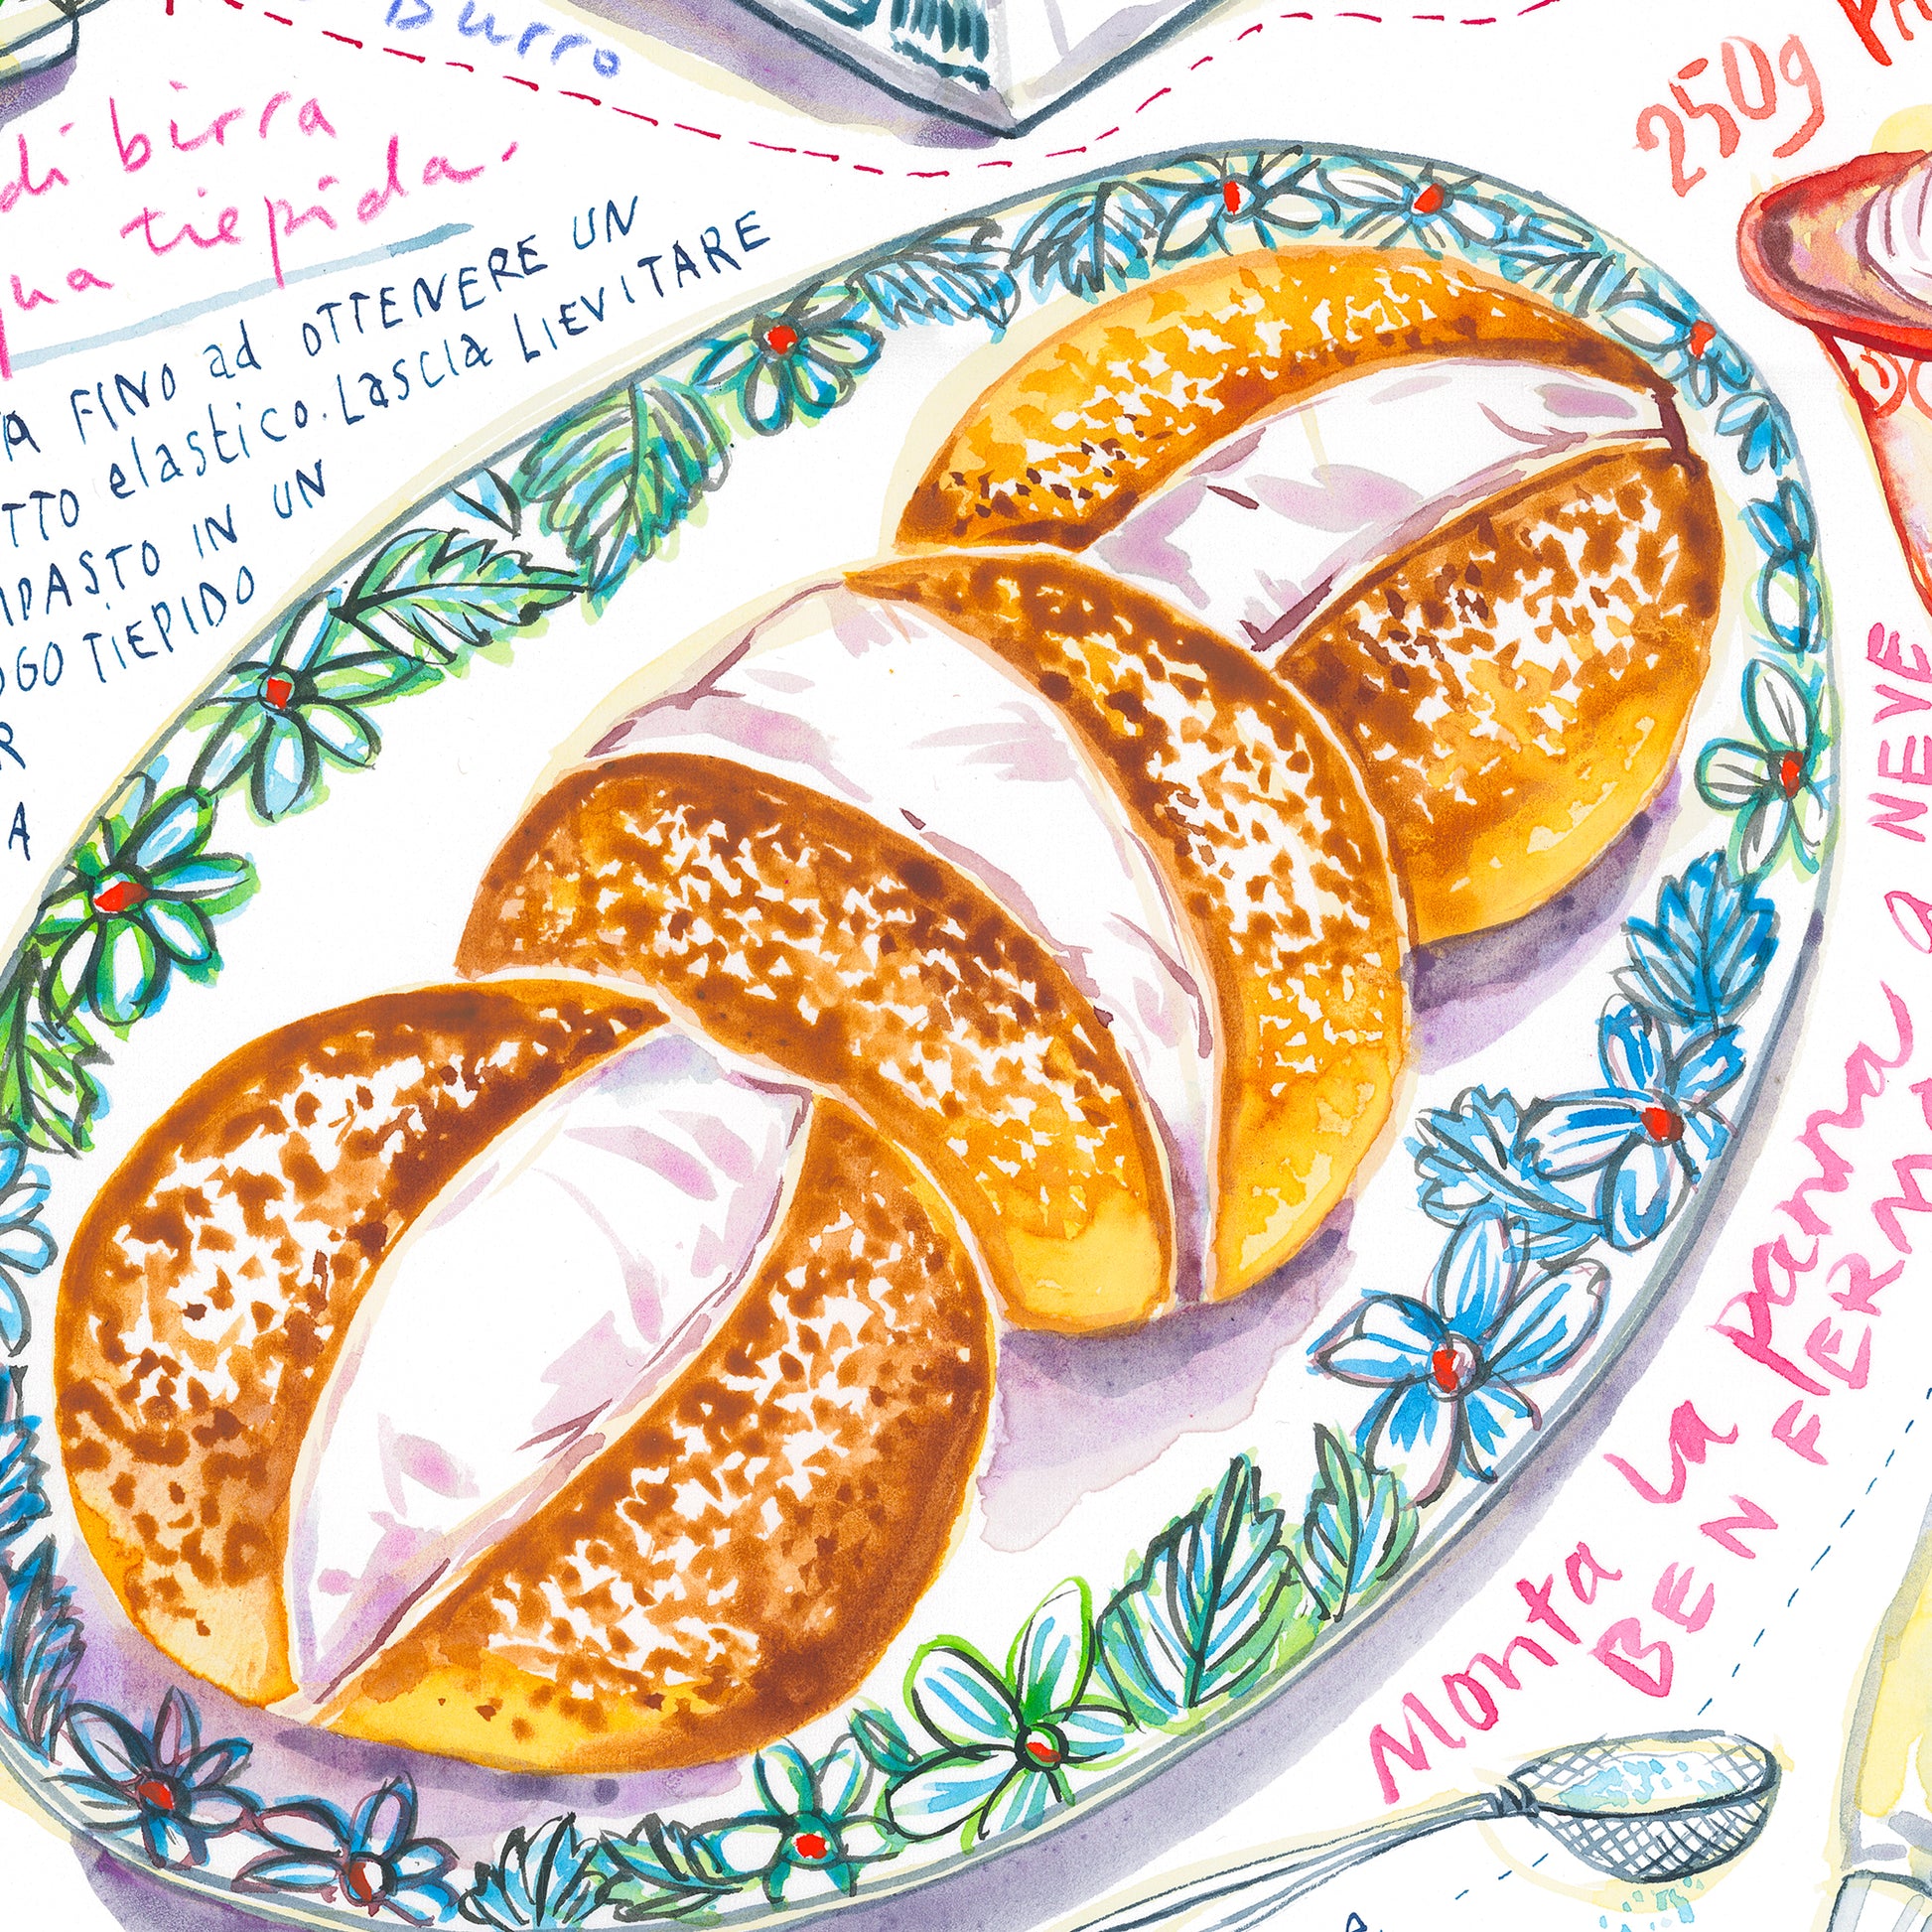 Burro
di birra
tiepida.
FINO ad OTTENERE UN
elastico. Lascia LIEVITARE
IN UN
TIEPIDO
R
A
250g
Monta la panna a NEVE
BEN FERMA